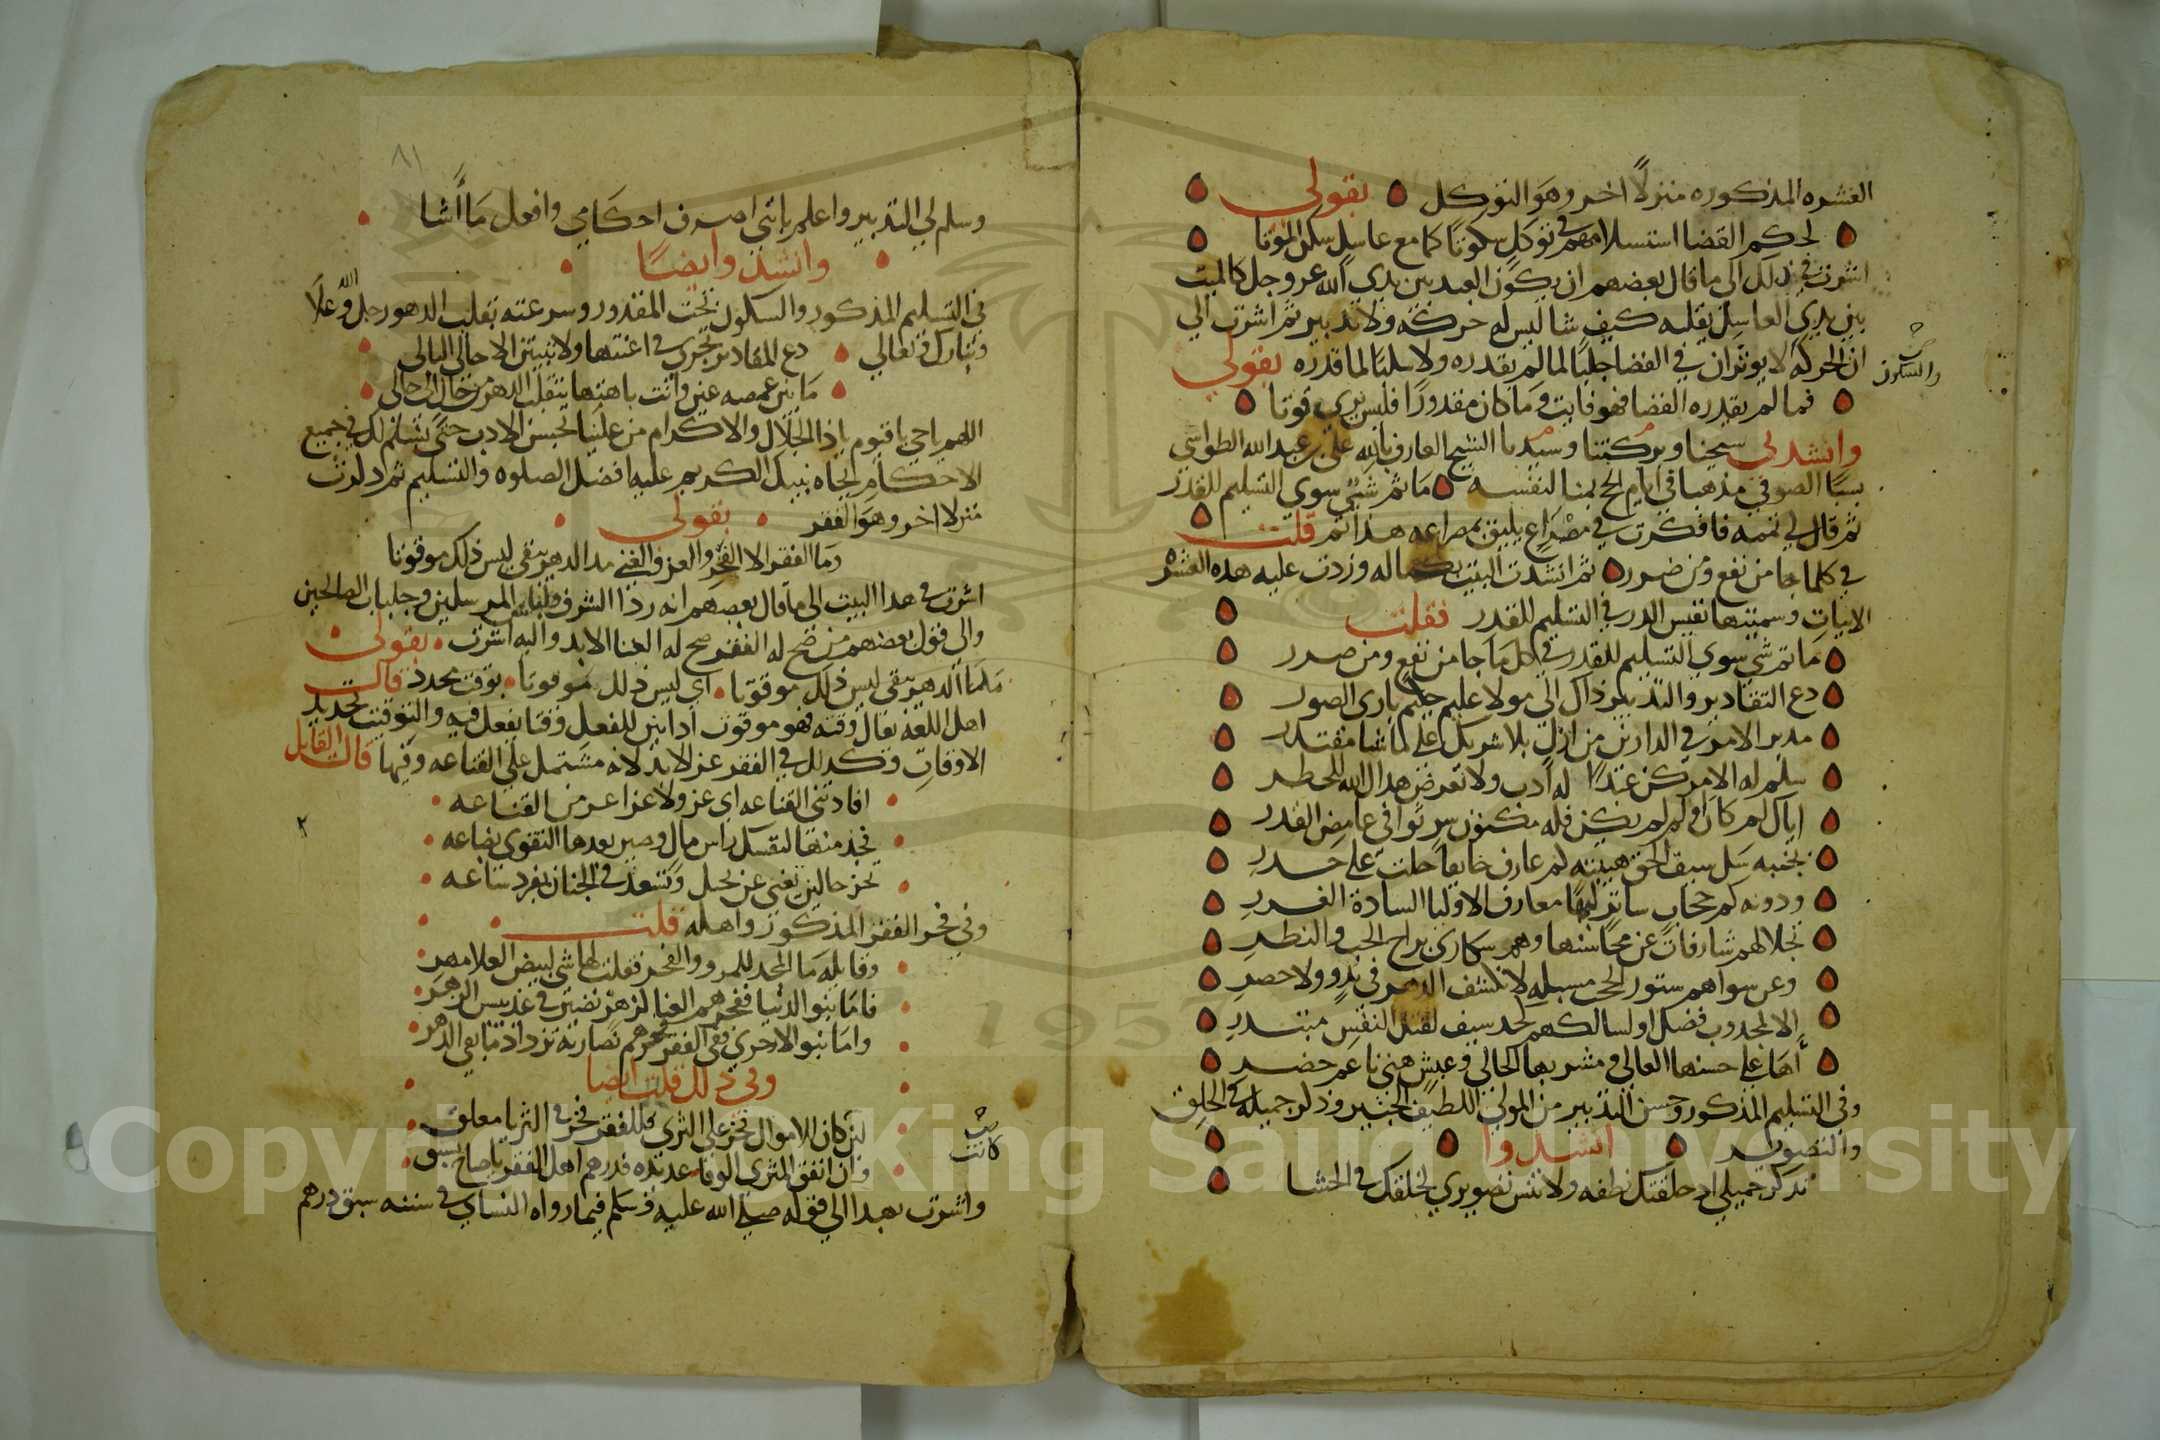 العشره المذكوره منزلًا اخر وهو التوكل بقولي
لحكم القضا استسلامهم في توكل سكوتا كما مع غاسل سكن الموتا
اشرت في ذلك الى ما قال بعضهم ان يكون العبد بين يدي الله عز وجل كالميت
بين يدي الغاسل يقلبه كيف شا ليس له حركة ولا تدبير ثم اشرت الى
ان الحركه لا يوثران في القضا جلبًا لما لم يقدره ولا سلبًا لما قدره بقولي
والسكون
فما لم يقدره القضا فهو فايت وما كان مقدورًا فليس يرى فوتا
وانشدني شيخنا وبركتنا وسيدنا الشيخ العارف بالله علي بن عبد الله الطواشي
الصوفي مذهبا في ايام الحج بمنا لنفسه ما ثم شي سوى التسليم للقدر
ثم قال لي تممه فافكرت في مصراع يليق بمصراعه هذا ثم قلت
في كلما جا من نفع ومن ضرر ثم انشدت البيت بكماله وزدت عليه هذه العشره
الابيات وسميتها نفيس الدرر في التسليم للقدر فقلت
ما ثم شي سوى التسليم للقدر في كل ما جا من نفع ومن ضرر
دع التقادير والتدبير ذاك الى مولا عليم حكيم باري الصور
مدبر الامر في الدارين من ازل بلا شريك على ما شا مقتدر
سلم له الامر كن عبدًا له ادب ولا تعرض هداك الله للخطر
اياك لم كان او لم لم يكن فله مكنون سر ثوا في غامض القدر
بجنبه سل سيف الحق هيبته لم عارف خايفا حلت على حذر
ودونه كم حجاب ساتر لبها معارف الاوليا السادة الغرر
تجلا لهم شارقات عن محاسنها وهم سكارى براح الحب والنظر
وعن سواهم ستور الحجب مسبله لا تكشف الدهر في بدو ولا حضر
الا لمجذوب فضل او لسالكهم لحد سيف لقتل النفس مبتدر
اها على حسنها العالي ومشربها الحالي وعيش هني ناعم خضر
وفي التسليم المذكور وحسن التدبير من المولى اللطيف الخبير وذكر جميله في الخلق
والتصوير انشدوا
تذكر جميلي اذ خلقتك نطفه ولا تنس تصويري لخلقك في الحشا
٨١
وسلم لي التدبير واعلم بانني اصرف احكامي وافعل ما أشا
وانشد وايضًا
في التسليم المذكور والسكون تحت المقدور وسرعته تقلب الدهور جل الله وعلا
وتبارك وتعالى دع المقادير تجري في اعنتها ولا تبيتن الا خالي البالي
ما بين غمضه عين وانتباهتها يتقلب الدهر من حال الى حالي
اللهم ياحي يا قيوم ياذا الجلال والاكرام من علينا بحسن الادب حتى نسلم لك في جميع
الاحكام بجاه نبيك الكريم عليه افضل الصلوه والتسليم ثم ادرت
منزلا اخر وهو الفقر بقولي
وما الفقر الا الفخر والعز والغنى مدا الدهر يبقى ليس ذلك موقوتا
اشرت في هذا البيت الى ما قال بعضهم انه ردا الشرف ولباس المرسلين وجلباب الصالحين
والى قول بعضهم من صح له الفقر صح له الغنا الابد واليه اشرت بقولي
مدا الدهر يبقى ليس ذلك موقوتا اي ليس ذلك موقوتا بوقت محدد قالت
اهل اللغه يقال وقته فهو موقوت اذا بين للفعل وقتا يفعل فيه والتوقيت تحديد
الاوقات وكذلك في الفقر عز لابد لانه مشتمل على القناعه وفيها قال القايل
افادتني القناعه اي عز ولا عزا اعز من القناعه
فخذ منها لنفسك راس مال وصير بعدها التقوى بضاعه
تحز حالين تغنى عن بخيل وتسعد في الجنان بفرد ساعه
وفي فخر الفقر المذكور واهله قلت
وقايله ما المجد للمرو والفخر فقلت لها شي لبيض العلا مهر
فاما بنو الدنيا ففخرهم الغنا لزهر نضير في غد ييبس الزهر
واما بنو الاخرى ففي الفقر فخرهم نضارته تزداد ما بقي الدهر
وفي ذلك قلت ايضا
لئن كان للاموال فخر على الثرى فللفقر فخر في الثريا معلق
كانت
وان انفق المثري الوفا عديده فدرهم اهل الفقر يا صاح يسبق
واشرت بهذا الى قوله صلى الله عليه وسلم فيما رواه النساي في سننه سبق درهم
Copyright © King Saud University
1957